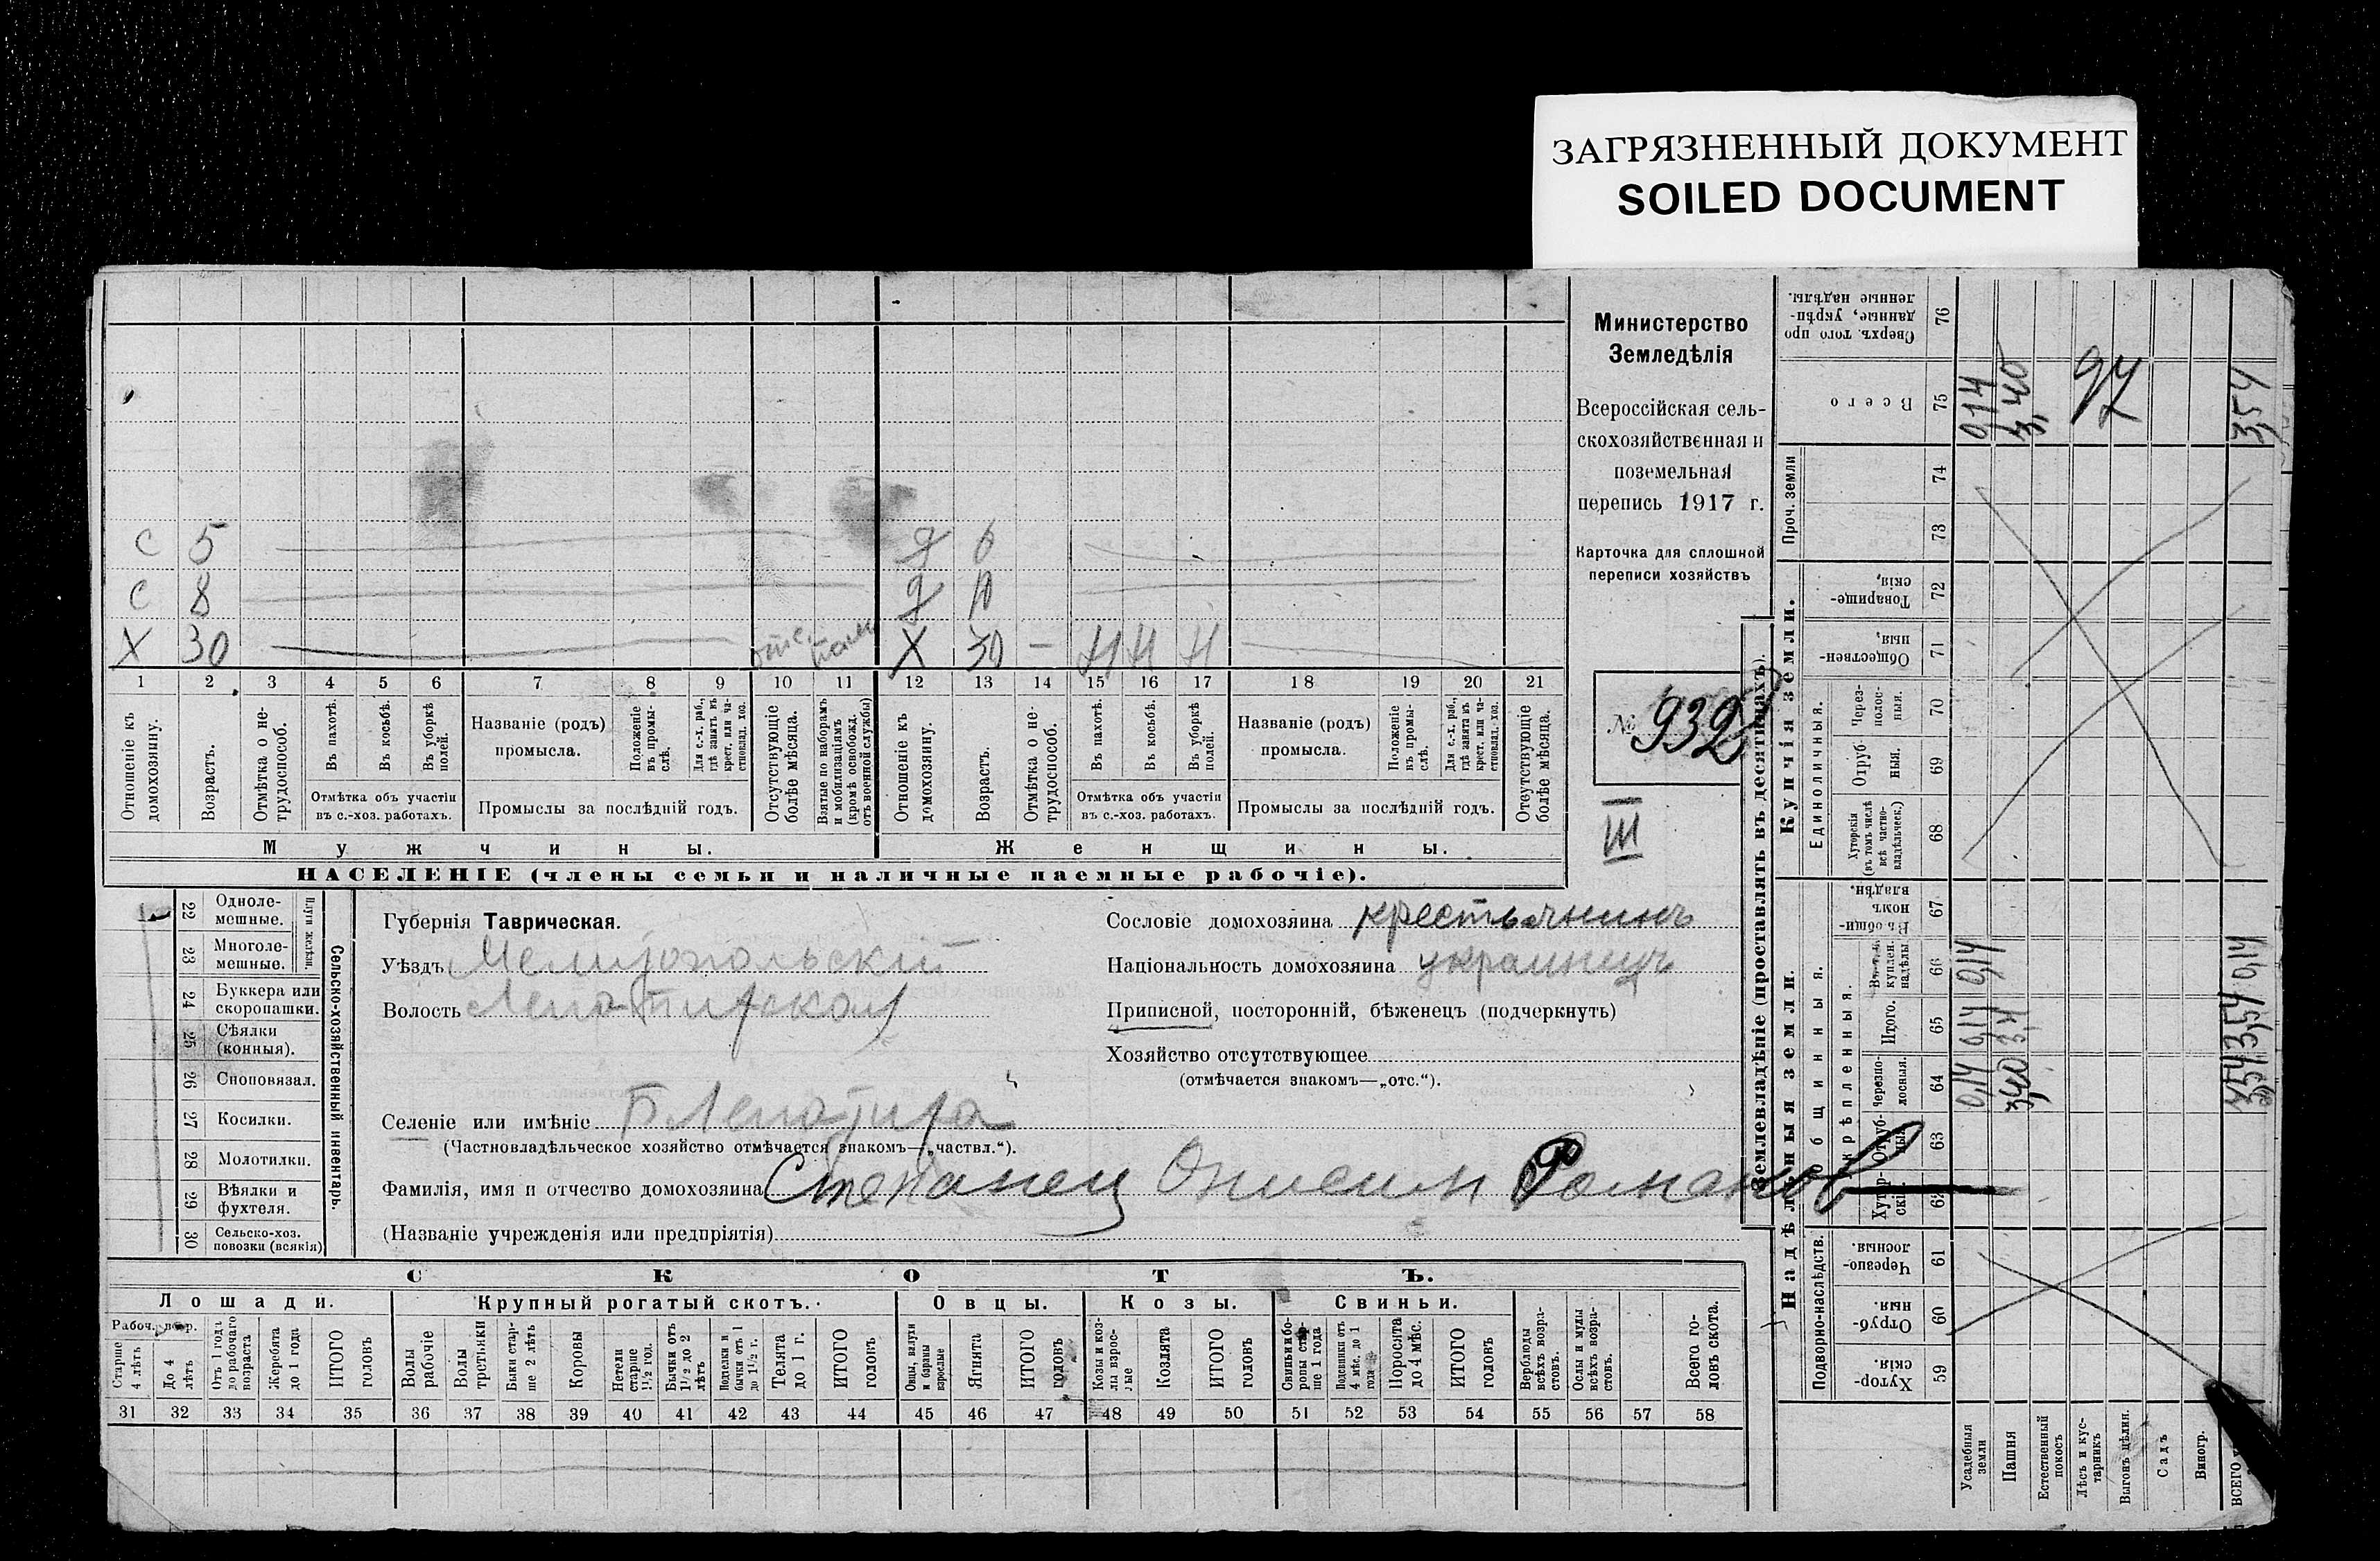 ЗАГРЯЗНЕННЫЙ ДОКУМЕНТ
SOILED DOCUMENT
с 5 д 6
с 8 д 10
Х 30 Х 30 — Н Н Н
1 2 3 4 5 6 7 8 9 10 11 12 13 14 15 16 17 18 19 20 21
Отношеніе къ домохозяину.
Возрастъ.
Отмѣтка о нетрудоспособ.
Въ пахотѣ.
Въ косьбѣ.
Въ уборкѣ полей.
Отмѣтка объ участіи въ с.-хоз. работахъ.
Названіе (родъ) промысла.
Положеніе въ промыслѣ.
Для с.-х. раб., гдѣ занятъ въ крест. или частновлад. хоз.
Промыслы за послѣдній годъ.
Отсутствующіе болѣе мѣсяца.
Взятые по наборамъ и мобилизаціямъ (кромѣ освобожд. отъ военной службы)
Отношеніе къ домохозяину.
Возрастъ.
Отмѣтка о нетрудоспособ.
Въ пахотѣ.
Въ косьбѣ.
Въ уборкѣ полей.
Отмѣтка объ участіи въ с.-хоз. работахъ.
Названіе (родъ) промысла.
Положеніе въ промыслѣ.
Для с.-х. раб., гдѣ занята въ крест. или частновлад. хоз.
Промыслы за послѣдній годъ.
Отсутствующіе болѣе мѣсяца.
Мужчины.
Женщины.
НАСЕЛЕНІЕ (члены семьи и наличные наемные рабочіе).
Министерство
Земледѣлія
Всероссійская сель-
скохозяйственная и
поземельная
перепись 1917 г.
Карточка для сплошной
переписи хозяйствъ
№ 932
III
22 Одноле-мешные.
23 Многоле-мешные.
Плуги желѣзн.
24 Буккера или скоропашки.
25 Сѣялки (конныя).
26 Сноповязал.
27 Косилки.
28 Молотилки.
29 Вѣялки и фухтеля.
30 Сельско-хоз. повозки (всякія)
Сельско-хозяйственный инвентарь.
Губернія Таврическая.
Уѣздъ Мелитопольскій
Волость
Селеніе или имѣніе
(Частновладѣльческое хозяйство отмѣчается знакомъ—„частвл.“).
Фамилія, имя и отчество домохозяина Степанец Онисим Романов
(Названіе учрежденія или предпріятія)
Сословіе домохозяина крестьянинъ
Національность домохозяина украинецъ
Приписной, посторонній, бѣженецъ (подчеркнуть)
Хозяйство отсутствующее
(отмѣчается знакомъ—„отс.“).
СКОТЪ.
Лошади.
Крупный рогатый скотъ.
Овцы.
Козы.
Свиньи.
Старше 4 лѣтъ
До 4 лѣтъ
Отъ 1 года до рабочаго возраста
Жеребята до 1 года
ИТОГО головъ
Волы рабочіе
Волы третьяки
Быки старше 2 лѣтъ
Коровы
Нетели старше 1 1/2 год.
Бычки отъ 1 1/2 до 2 лѣтъ
Телята до 1 г.
ИТОГО головъ
Ягнята
ИТОГО головъ
Козы и козлы взрослые
Козлята
ИТОГО головъ
Поросята до 4 мѣс.
ИТОГО головъ
Верблюды всѣхъ возрастовъ.
Ослы и мулы всѣхъ возрастовъ.
Всего головъ скота.
31 32 33 34 35 36 37 38 39 40 41 42 43 44 45 46 47 48 49 50 51 52 53 54 55 56 57 58
Землевладѣніе (проставлять въ десятинахъ).
Сверхъ того проданные, укрѣпленные надѣлы. 76
Всего 75
0,14
3,40
97
3,54
Проч. земли
74
73
Купчія земли.
Товарищескія, 72
Общественныя, 71
Единоличныя.
Черезполосныя. 70
Отрубныя. 69
Хуторскія (въ томъ числѣ всѣ частновладѣльческ.) 68
Надѣльныя земли.
Общинныя.
Въ общинномъ владѣн. 67
купленн. надѣлы 66
0,14
0,14
Укрѣпленныя.
Итого. 65
0,14
3,4
3,54
Черезполосныя. 64
0,14
3,40
3,54
Отрубныя 63
Хуторскія. 62
Подворно-наслѣдств.
Черезполосныя. 61
Отрубныя. 60
Хуторскія. 59
Усадебныя земли
Пашня
Естественный покосъ
Лѣсъ и кустарникъ
Выгонъ цѣлин.
Садъ
Виногр.
ВСЕГО